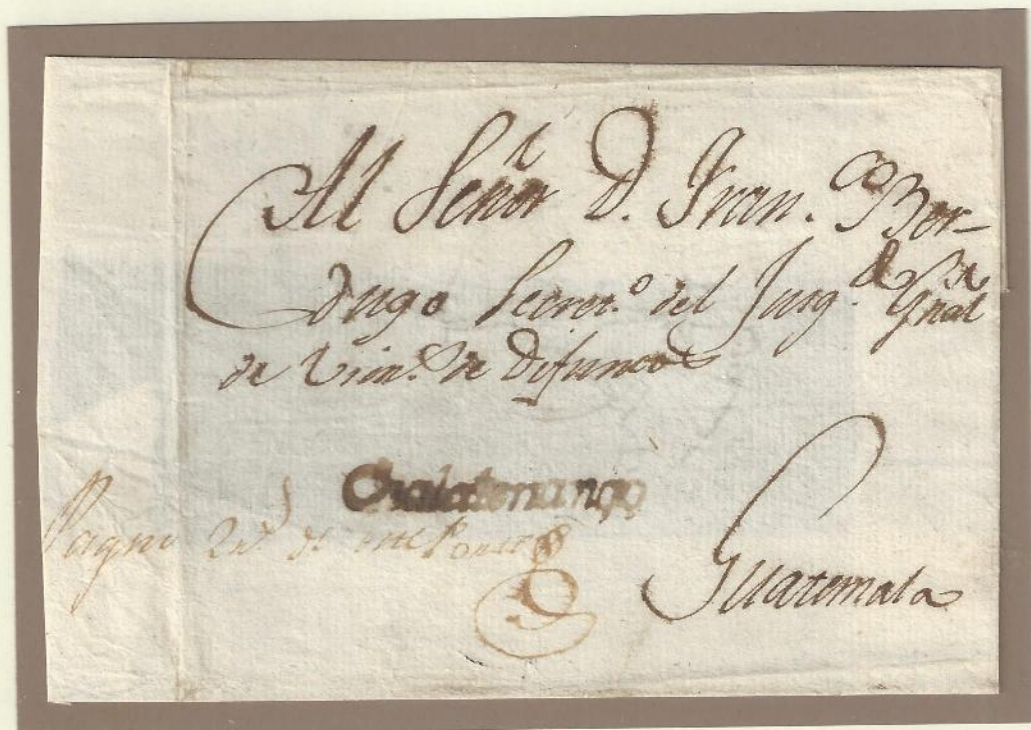 Al Señor D. Fran.co Ber-
dugo Secret.o del Juzg.do Gral
de Vien.s de Difuntos
Chalatenango
Pague 2 r.s de
Guatemala